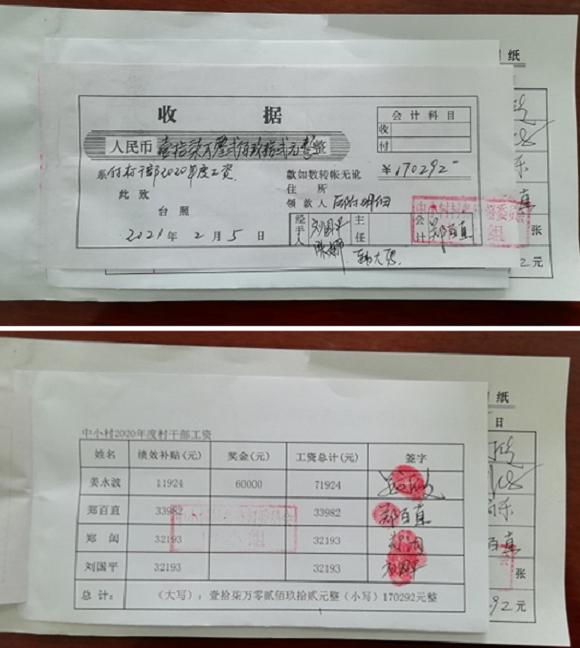 纸
收 据
会计科目
收
付
人民币 壹拾柒万零贰佰玖拾贰元整
¥170292
系付村干部2020年度工资
款如数转帐无讹
此致
住所
台照
领款人 后附明细
2021年2月5日
经手人 刘国平
主任
会计 郑百直
中小村
组
张
2元
纸
日
中小村2020年度村干部工资
姓名 绩效补贴(元) 奖金(元) 工资总计(元) 签字
姜永波 11924 60000 71924
郑百直 33982 33982 郑百直
郑 闳 32193 32193
刘国平 32193 32193 刘国平
总 计： （大写）：壹拾柒万零贰佰玖拾贰元整（小写）170292元整
张
92元